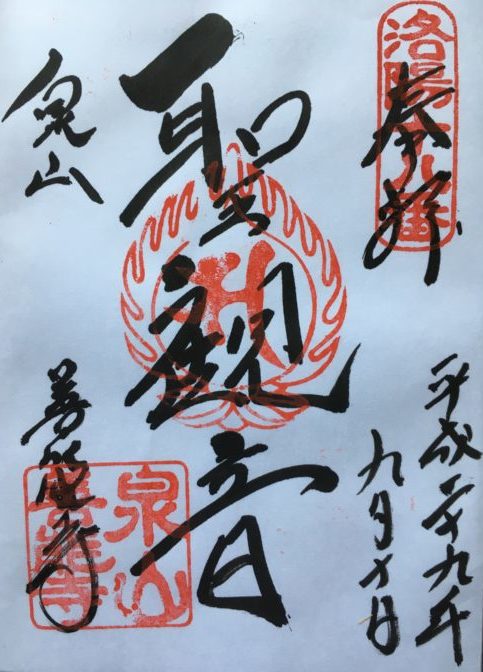 奉拝
洛陽十八番
平成二十九年
九月十日
聖觀音
泉山
善能寺
泉山
善能寺